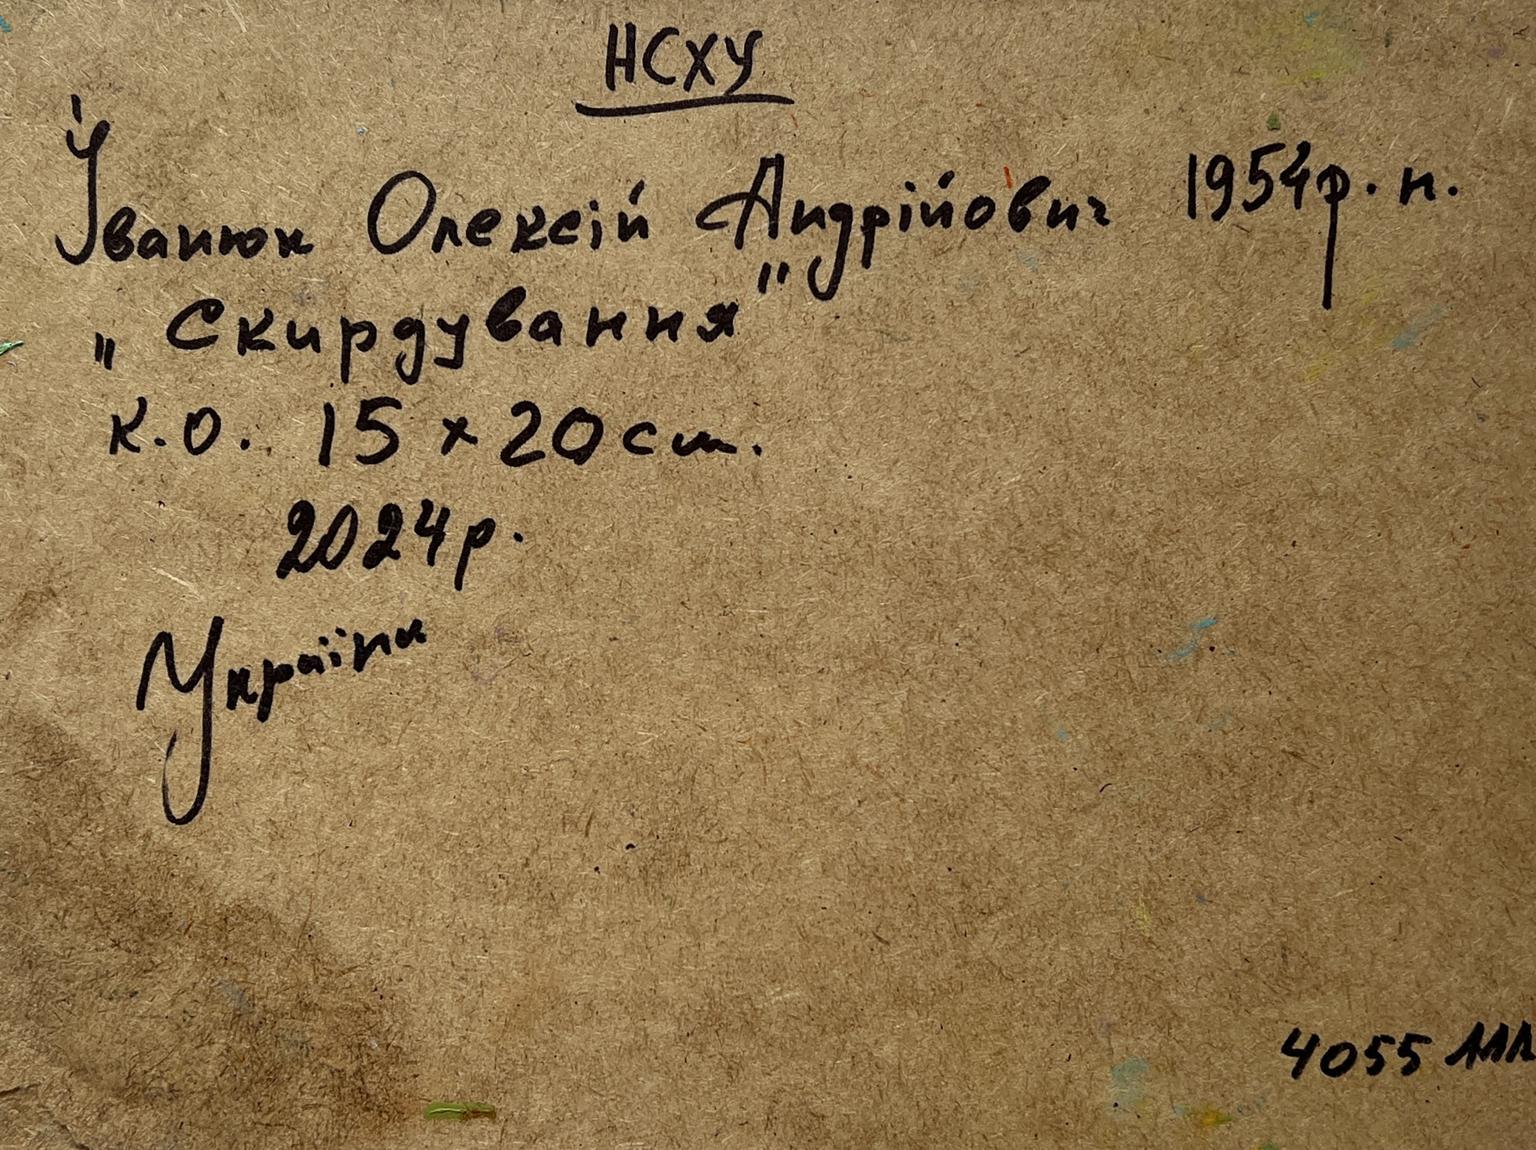 НСХУ
Іванюк Олексій Андрійович 1954р.н.
„Скирдування"
к.о. 15 × 20 см.
2024р.
Україна
4055